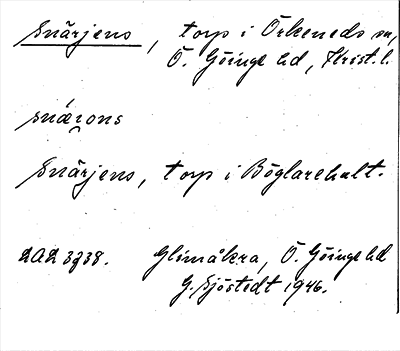 Snärjens, torp i Örkeneds sn,
Ö. Göinge hd, Krist. l.
snærons
Snärjens, torp i Böglarehult.
LAL 3738. Glimåkra, Ö. Göinge hd
G. Sjöstedt 1946.